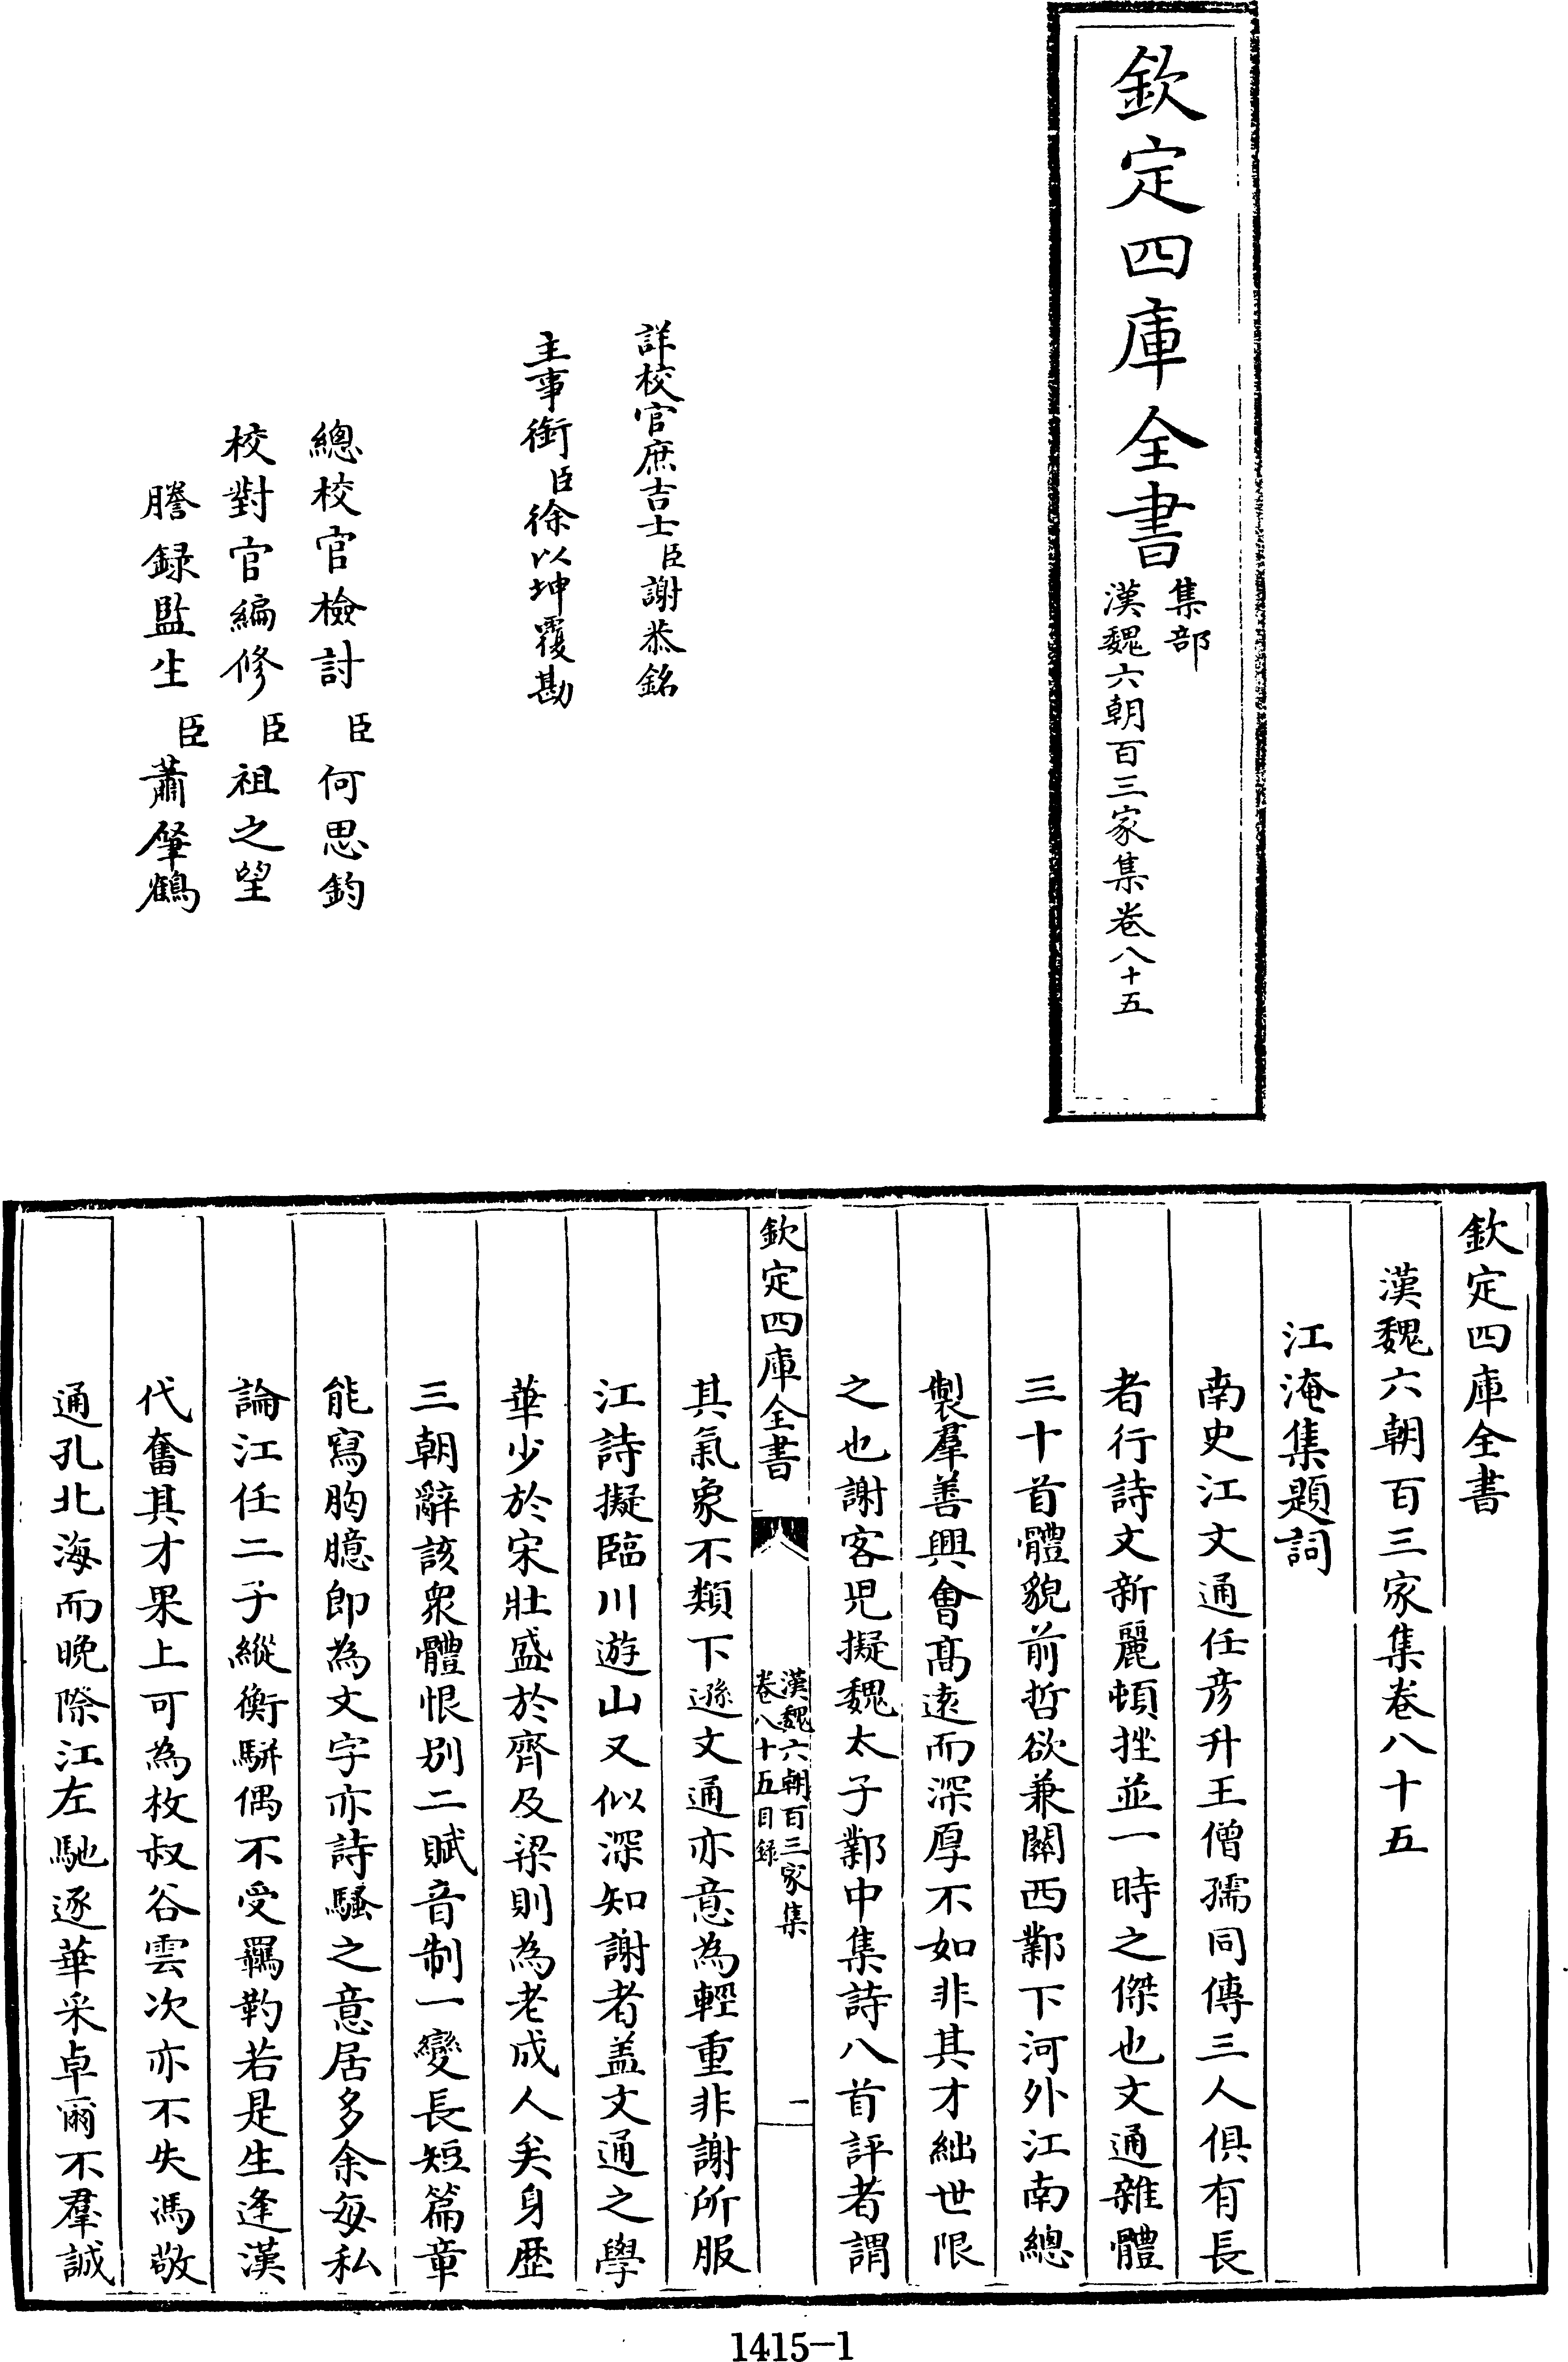 欽定四庫全書
集部
漢魏六朝百三家集卷八十五
詳校官庶吉士臣謝恭銘
主事銜臣徐以坤覆勘
總校官檢討臣何思鈞
校對官編修臣祖之望
謄録監生臣蕭肇鶴
欽定四庫全書
漢魏六朝百三家集卷八十五
江淹集題詞
南史江文通任彦升王僧孺同傳三人俱有長
者行詩文新麗頓挫並一時之傑也文通雜體
三十首體貌前哲欲兼關西鄴下河外江南總
製羣善興會髙逺而深厚不如非其才絀世限
之也謝客児擬魏太子鄴中集詩八首評者謂
欽定四庫全書
漢魏六朝百三家集
卷八十五目錄
一
其氣象不類下遜文通亦意為輕重非謝所服
江詩擬臨川遊山又似深知謝者盖文通之學
華少於宋壯盛於齊及梁則為老成人矣身歴
三朝辭該衆體恨别二賦音制一變長短篇章
能寫胸臆即為文字亦詩騷之意居多余每私
論江任二子縱衡駢偶不受羈靮若是生逢漢
代奮其才果上可為枚叔谷雲次亦不失馮敬
通孔北海而晚際江左馳逐華采卓爾不羣誠
1415-1